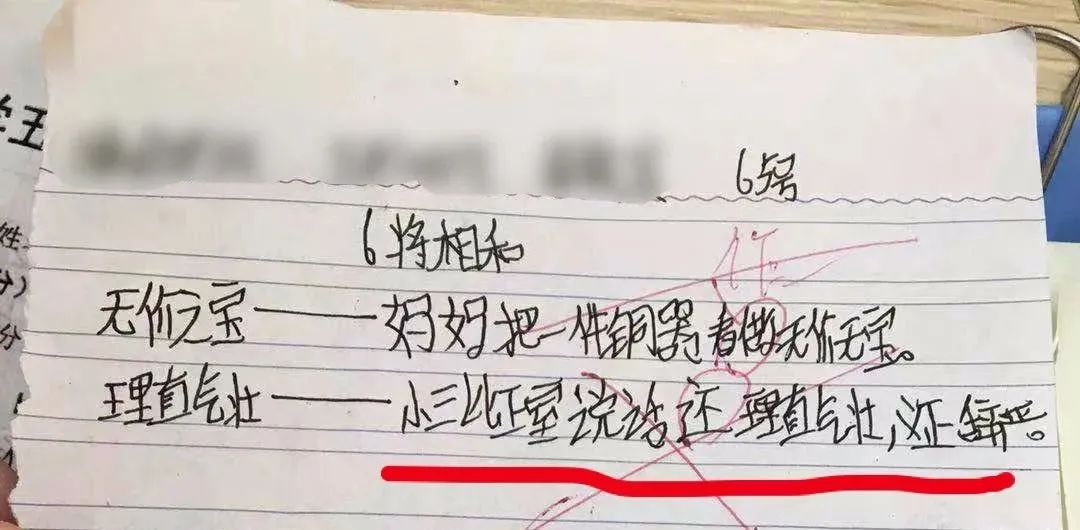 五
6号
姓
6将相和
分)
无价之宝——妈妈把一件铜器看做无价无宝。
分
理直气壮——小三比正室说话还理直气壮,义正辞严。